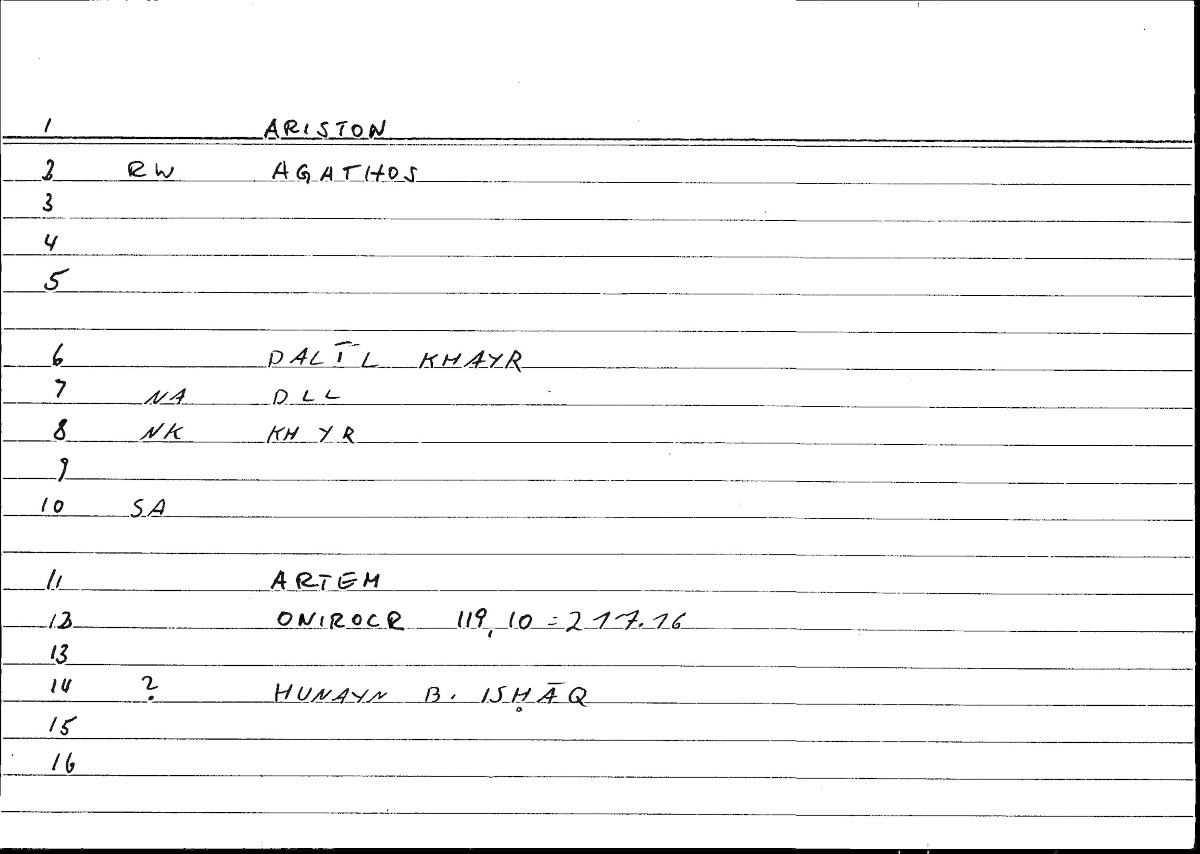 1 ARISTON
2 RW AGATHOS
3
4
5
6 DALĪL KHAYR
7 NA DLL
8 NK KHYR
9
10 SA
11 ARTEM
12 ONIROCR 119,10 = 217.16
13
14 ? HUNAYN B. ISḤĀQ
15
16